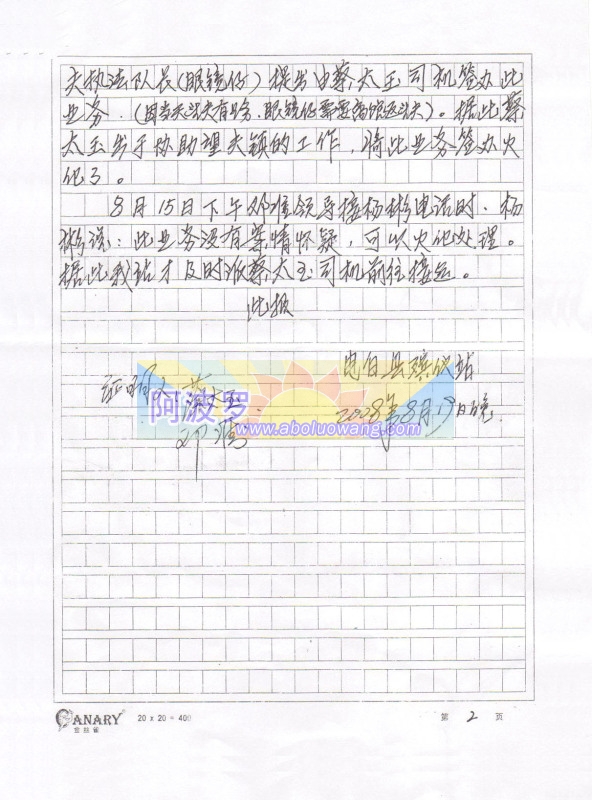 夫执法队长(眼镜仔)提出由蔡太玉司机签办此
业务.(因当天
眼镜仔需要
)。据此蔡
太玉出于协助望夫镇的工作,将此业务签办火
化了。
8月15日下午邓准领导接杨彬电话时.杨
彬说:此业务没有案情怀疑,可以火化处理。
据此我站才及时派蔡太玉司机前往接运。
此报
电白县殡仪站
证明人 蔡太玉
2008年8月19日晚.
阿波罗
www.aboluowang.com
CANARY
金丝雀
20 x 20 = 400
第 2 页